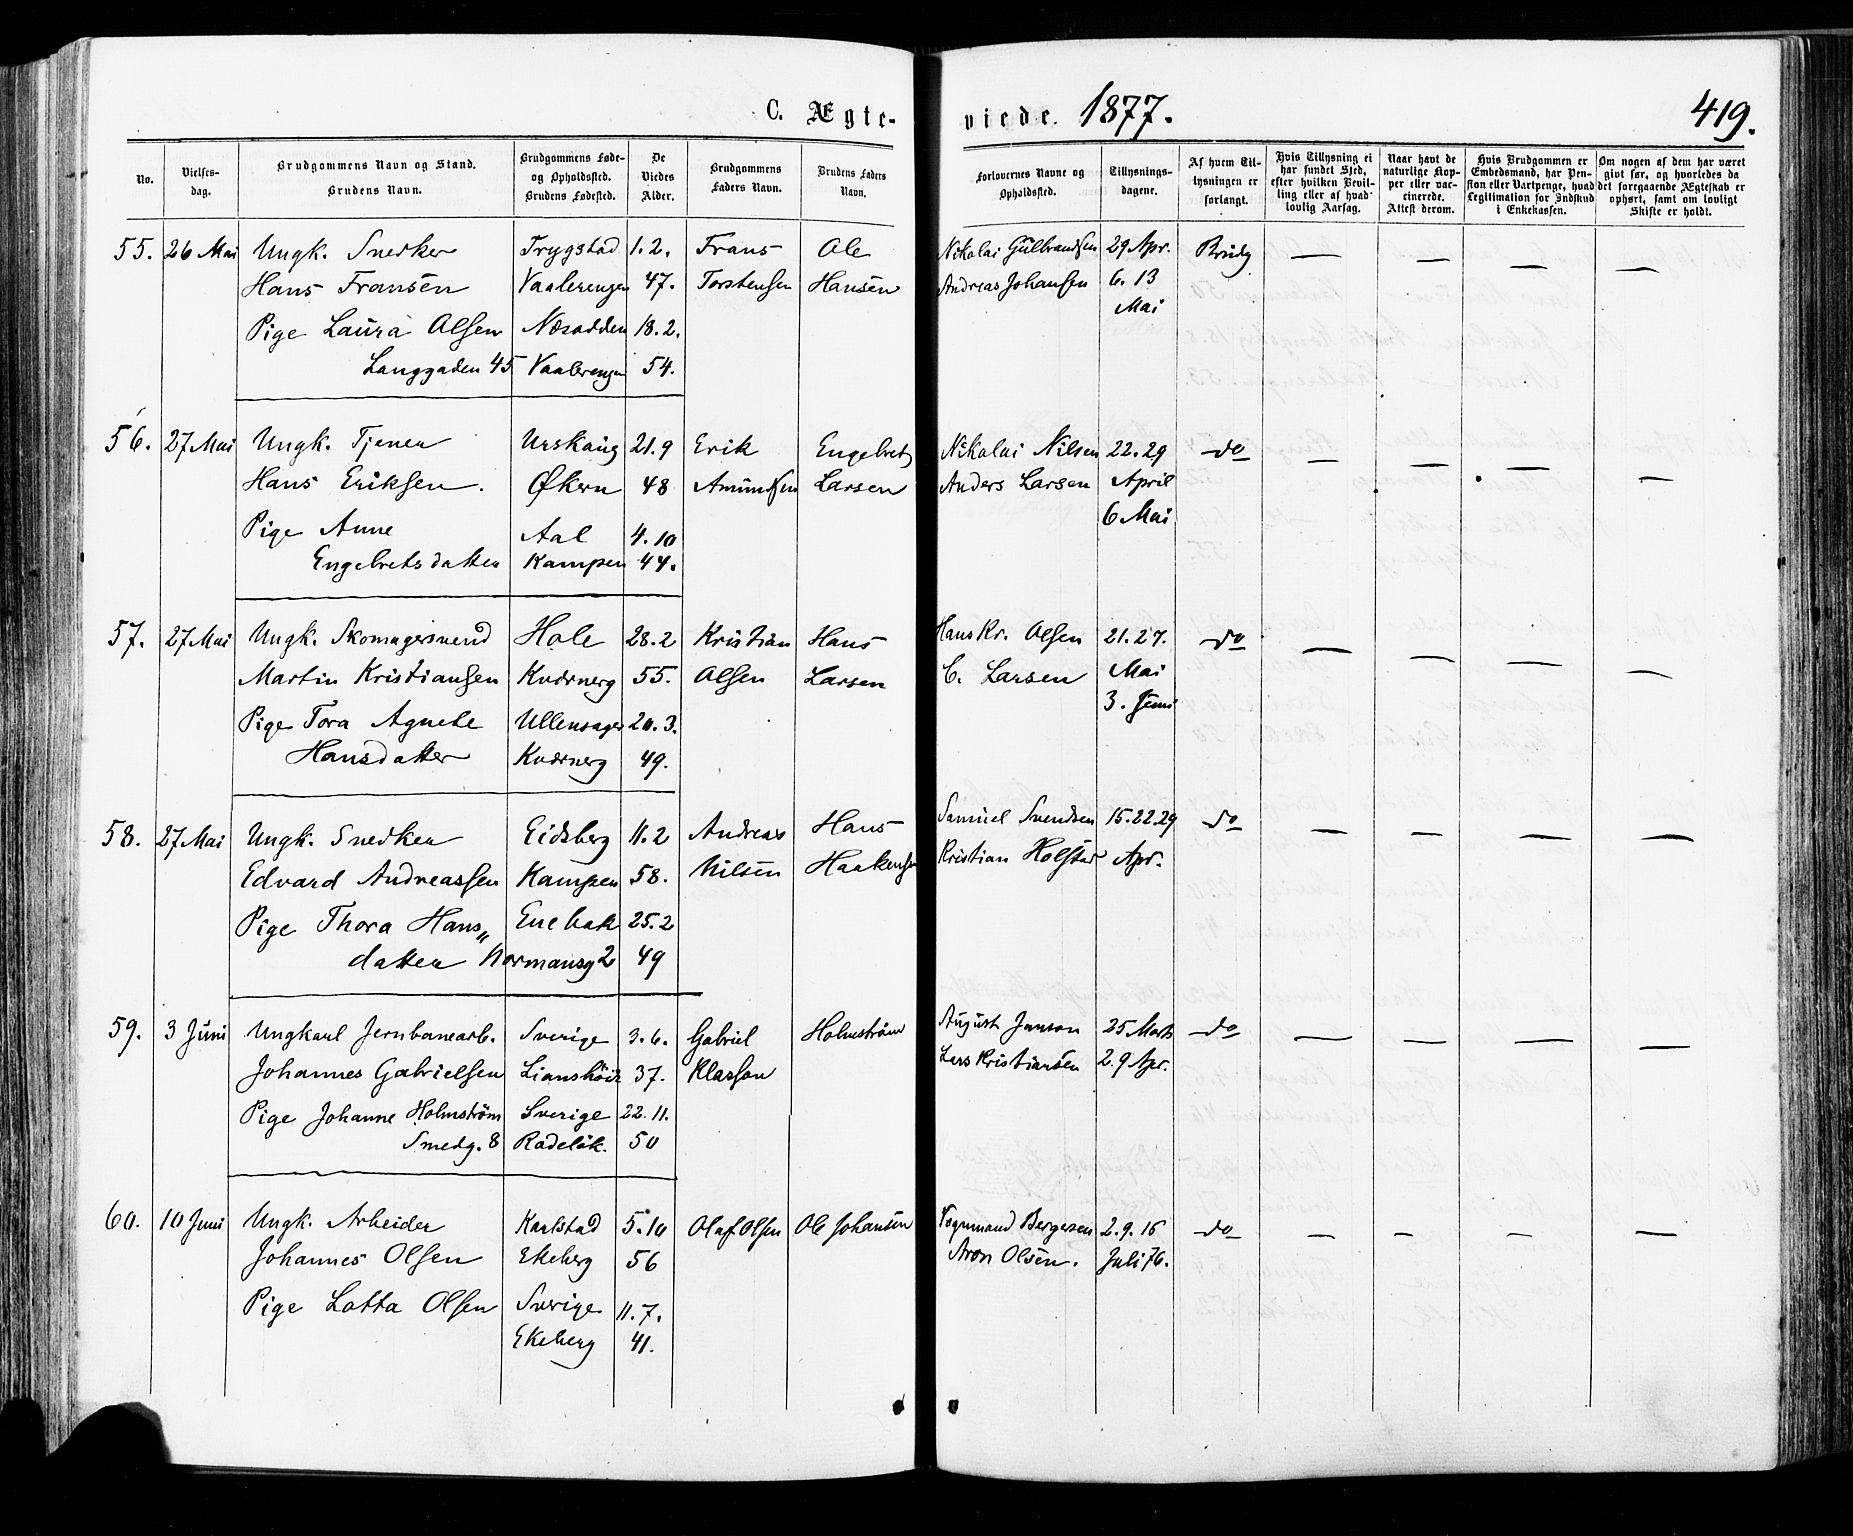 C. Ægte- viede. 1877. 419.
No. Vielses-dag. Brudgommens Navn og Stand. Brudens Navn. Brudgommens Føde- og Opholdssted. Brudens Fødested. De Viedes Alder. Brudgommens Faders Navn. Brudens Faders Navn. Forlovernes Navne og Opholdssted. Tillysnings-dagene. Af hvem Til-lysningen er forlangt. Hvis Tillysning ei har fundet Sted, efter hvilken Bevil-ling eller af hvad lovlig Aarsag. Naar havt de naturlige Kop-per eller vac-cinerede. Attest derom. Hvis Brudgommen er Embedsmand, har Pen-sion eller Vartpenge, hvad Legitimation for Indskud i Enkekassen. Om nogen af dem har været gift før, og hvorledes da det foregaaende Ægteskab er ophørt, samt om lovligt Skifte er holdt.
55. 26 Mai Ungk. Snedker Trygstad 1.2. Frans Ole Nikolai Gulbrandsen 29 Apr. Brudg — — — —
Hans Fransen Vaalerengen 47. Torstensen Hansen Andreas Johansen 6. 13
Mai
Pige Laura Olsen Næsodden 18.2.
Langgaden 45 Vaalerengen 54.
56. 27 Mai Ungk. Tjener Urskoug 21.9 Erik Engebret Nikolai Nilsen 22.29 do — — — —
Hans Eriksen. Økern 48 Amundsen Larsen Anders Larsen April
6 Mai
Pige Anne Aal 4.10
Engebretsdatter Kampen 44.
57. 27 Mai Ungk. Skomagersvend Hole 28.2 Kristian Hans Hans Kr. Olsen 21.27. do — — — —
Martin Kristiansen Kværnerg 55. Olsen Larsen C. Larsen Mai
3. Juni
Pige Tora Agnete Ullensager 20.3.
Hansdatter Kværnerg 49.
58. 27 Mai Ungk. Snedker Eidsberg 11.2 Andreas Hans Samuel Svendsen 15.22.29 do — — — —
Edvard Andreassen Kampen 58. Nilsen Haakensen Kristian Holstad Apr.
Pige Thora Hans„ Enebak 25.2
datter Normansg 2 49
59. 3 Juni Ungkarl Jernbanearb. Sverige 3.6. Gabriel Holmstrøm August Janson 25 Marts do — — — —
Johannes Gabrielsen 37. Klasson Lars Kristiansen 2.9 Apr.
Pige Johanne Holmstrøm Sverige 22.11.
Smedg. 8 Radeløk. 50
60. 10 Juni Ungk. Arbeider Karlstad 5.10 Olaf Olsen Ole Johansen Bergersen 2.9.16 do — — — —
Johannes Olsen Ekeberg 56 Aron Olsen. Juli 76.
Pige Lotta Olsen Sverige 11.7.
Ekeberg 41.